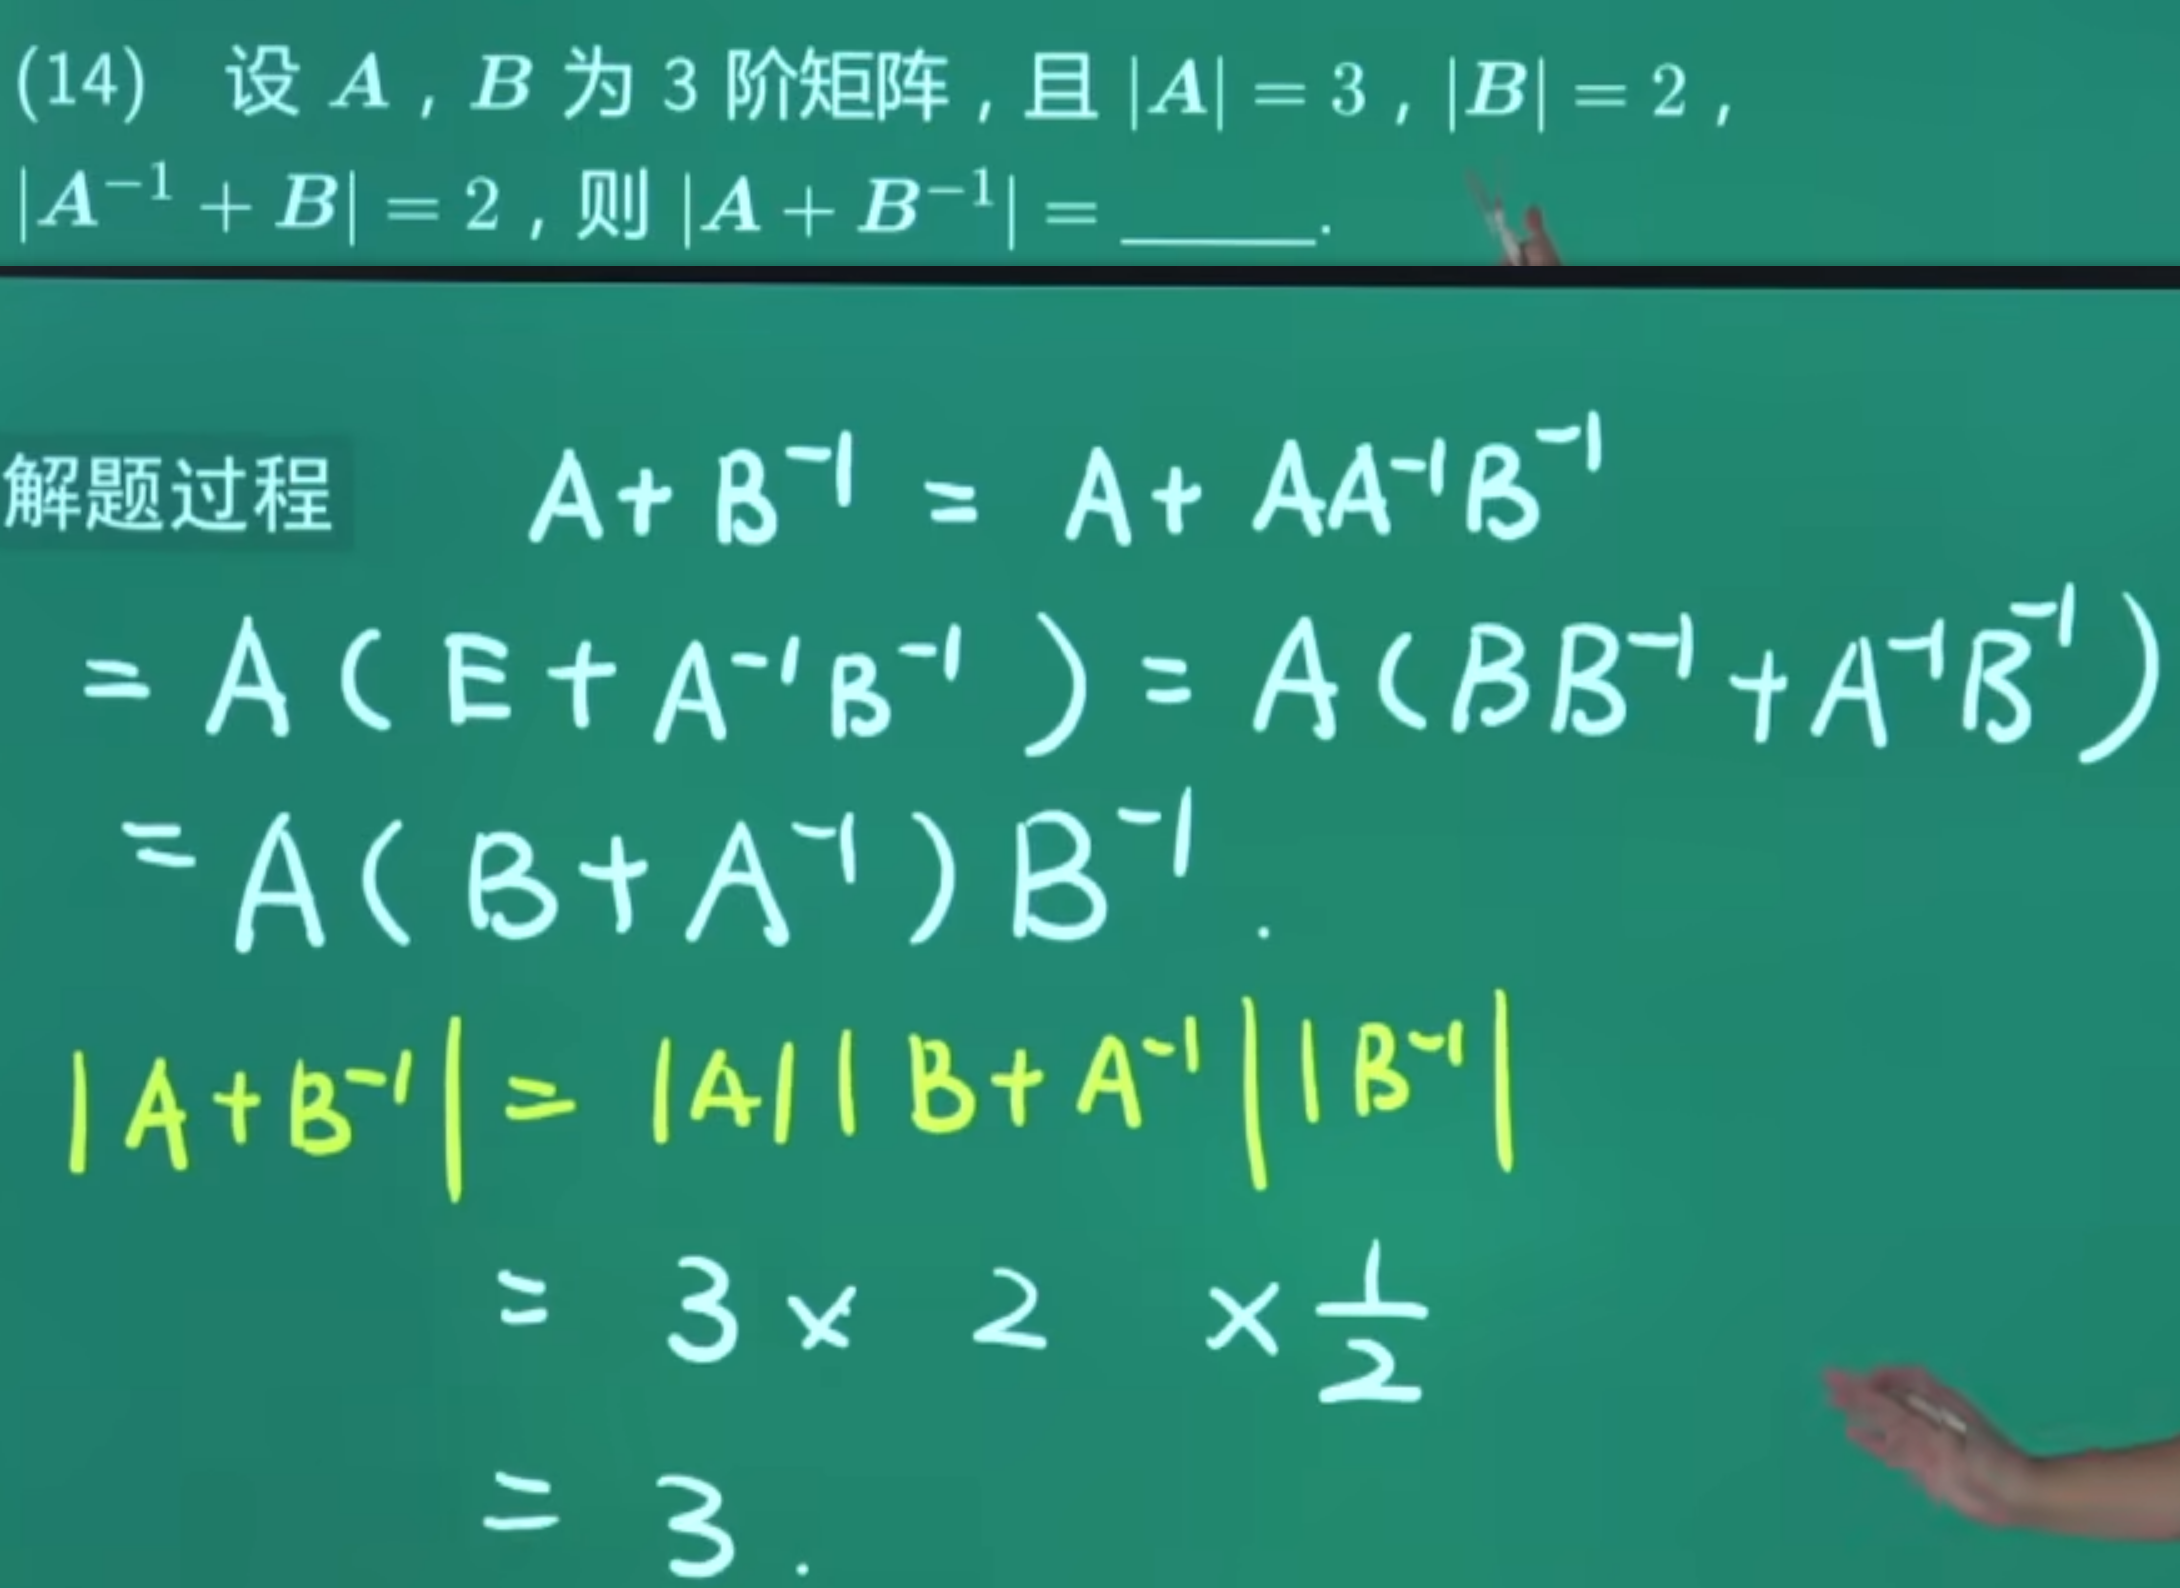 (14) 设 A , B 为 3 阶矩阵 , 且 |A| = 3 , |B| = 2 ,
|A⁻¹ + B| = 2 , 则 |A + B⁻¹| = ______.
解题过程 A + B⁻¹ = A + AA⁻¹B⁻¹
= A ( E + A⁻¹B⁻¹ ) = A ( BB⁻¹ + A⁻¹B⁻¹ )
= A ( B + A⁻¹ ) B⁻¹ .
| A + B⁻¹ | = |A| | B + A⁻¹ | | B⁻¹ |
= 3 × 2 × 1/2
= 3 .